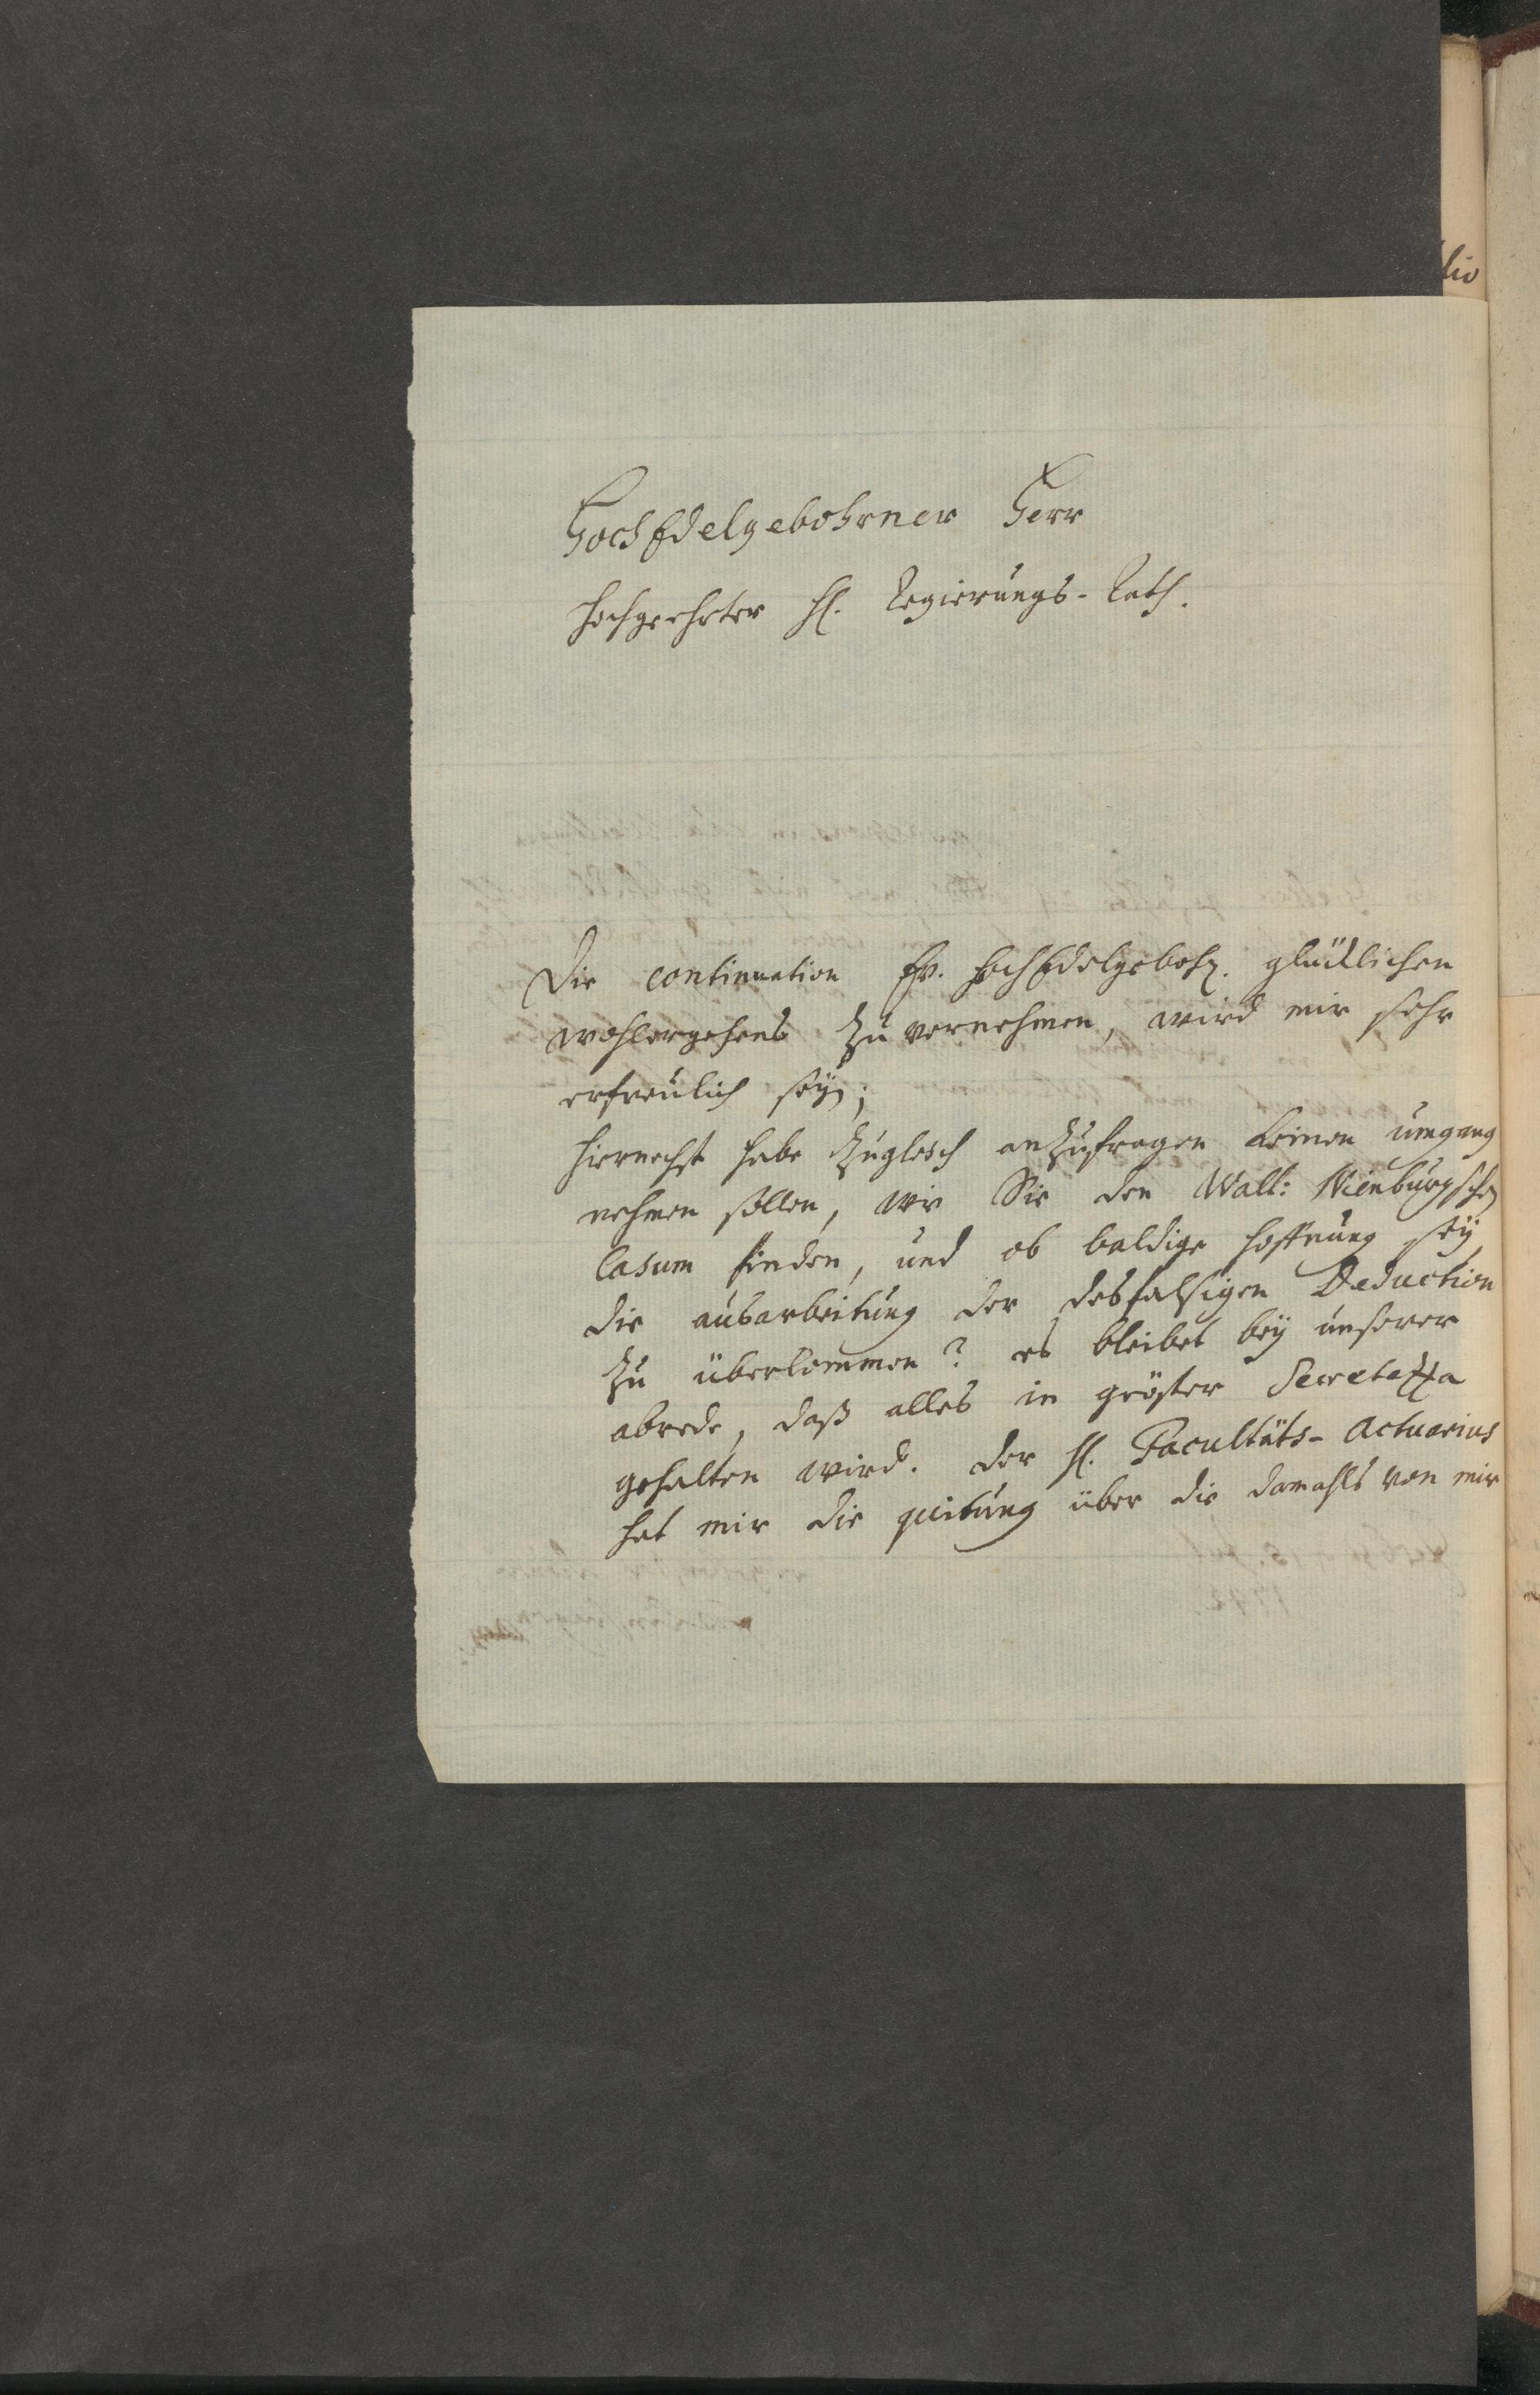 HochEdelgebohrner Herr
Hochgeehrter H. Regierungs-Rath.
Die continuation Ew. HochEdelgebohr. glücklichen
wohlergehens zu vernehmen, wird mir sehr
erfreulich seyn;
Hiernechst habe zugleich anzufragen keinen umgang
nehmen sollen, wie Sie den Wall: Nienburgschen
Casum finden, und ob baldige hoffnung sey
die ausarbeitung der desfalsigen Deduction
zu überkommen? es bleibet bey unserer
abrede, daß alles in gröster Secretezza
gehalten wird. Der H. Facultäts-Actuarius
hat mir die quitung über die damahls von mir